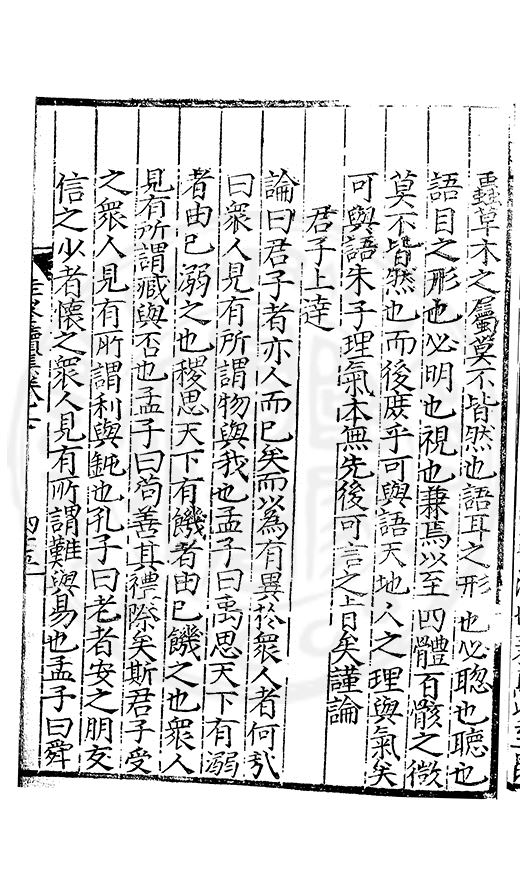 蟲草木之屬莫不皆然也語耳之形也必聰也聽也
語目之形也必明也視也兼焉以至四體百骸之微
莫不皆然也而後庶乎可與語天地人之理與氣矣
可與語朱子理氣本無先後可言之旨矣謹論
君子上達
論曰君子者亦人而已矣而以為有異於衆人者何哉
曰衆人見有所謂物與我也孟子曰禹思天下有溺
者由已溺之也稷思天下有饑者由已饑之也衆人
見有所謂臧與否也孟子曰茍善其禮際矣斯君子受
之衆人見有所謂利與鈍也孔子曰老者安之朋友
信之少者懷之衆人見有所謂難與易也孟子曰舜